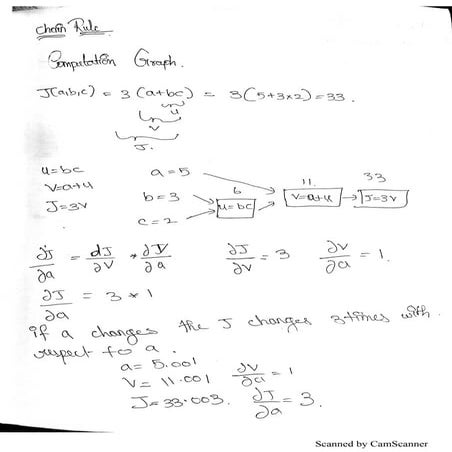 Chain Rule
Computation Graph.
J(a,b,c) = 3(a+bc) = 3(5+3×2)=33.
u
v
J.
u=bc
v=a+u
J=3v
a=5
b=3
c=2
6
u=bc
11.
v=a+u
33
J=3v
∂J/∂a = dJ/∂v * ∂V/∂a
∂J/∂v = 3
∂v/∂a = 1.
∂J/∂a = 3 * 1
if a changes the J changes 3 times with.
respect to a.
a= 5.001
V= 11.001
∂v/∂a = 1
J= 33.003.
∂J/∂a = 3.
Scanned by CamScanner